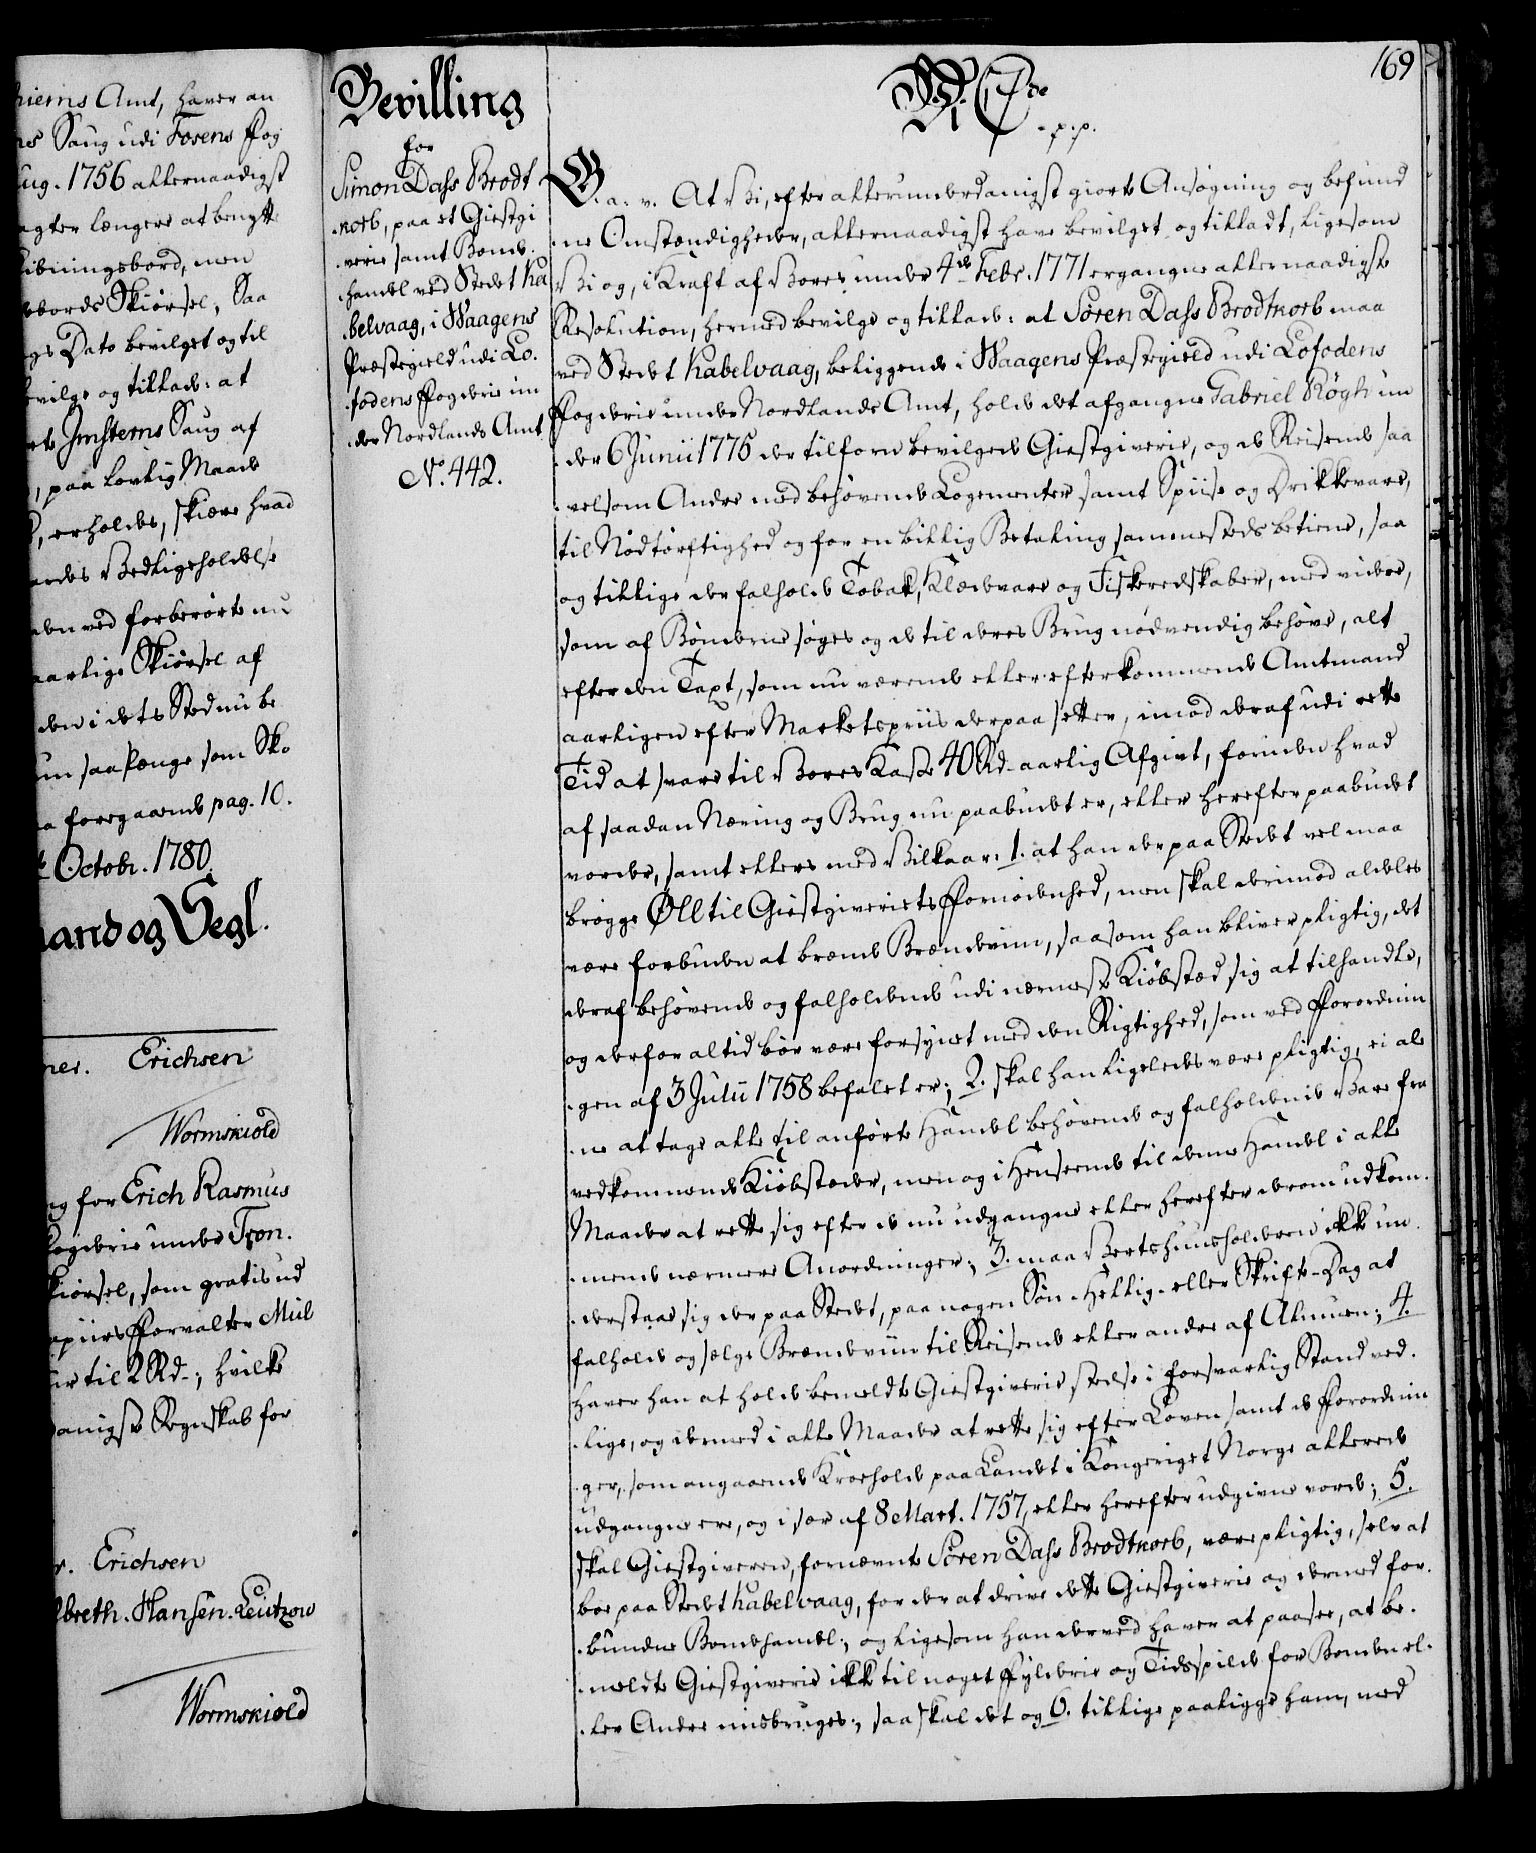 hiems Amt, haver an
ns Saug udi Fosens Fog
ug. 1756 allernaadigst
agter længere at benytte
ibningsbord, men
bords Skiørsel; Saa
gs Dato bevilget og til
evilge og tillade: at
ets Jmstems Saug af
, paa lovlig Maade
, erholdes, skiære hvad
ardes Vedligeholdelse
den ved forberørte nu
aarlige Skiørsel af
den i dets Sted nu be
un saa længe som Sko
a foregaaende pag. 10.
Octobr. 1780.
aand og Segl.
ner. Erichsen
Wormskiold
ng for Erich Rasmus
Fogderie under Tron.
kiørsel, som gratis ud
apiirs Forvalter Mül
er til 2 Rd.; hvilke
danigst Regnskab for
r. Erichsen
lbreth. Hansen. Leutzow
Wormskiold
169
Bevilling
for
Simon Dass Brodt
korb, paa et Giestgi
verie samt Bonde
handel ved Stedet Ka
belvaag, i Waagens
Præstegield udi Lo.
fodens Fogderie un
der Nordlands Amt
No. 442.
V. C. 7de
p. p.
G. a. v. At Vi, efter allerunderdanigst giorte Ansøgning og befund
ne Omstændigheder, allernaadigst have bevilget og tilladt, ligesom
Vi og, i Kraft af Vores under 4de Febr. 1771 ergangne allernaadigste
Resolution, hermed bevilge og tillade: at Søren Dass Brodtkorb maa
ved Stedet Kabelvaag, beliggende i Waagens Præstegield udi Lofodens
Fogderie under Nordlands Amt, holde det afgangne Gabriel Røgh un
der 6 Junii 1775 der tilforn bevilgede Giestgiverie, og de Reisende saa
velsom Andre med behøvende Logementer samt Spiise og Drikkevare,
til Nødtørftighed og for en billig Betaling sammesteds betiene, saa
og tillige der falholde Tobak, Klædevare og Fiskeredskaber, med videre,
som af Bønderne søges og de til deres Brug nødvendig behøve, alt
efter den Taxt, som nu værende eller efterkommende Amtmand
aarligen efter Marketspriis derpaa setter, imod deraf udi rette
Tid at svare til Vores Kasse 40 Rd. aarlig Afgivt, foruden hvad
af saadan Næring og Brug nu paabudet er, eller herefter paabudet
vorder, samt ellers med Vilkaar: 1. at han der paa Stedet vel maa
brygge Øll til Giestgiveriets Fornødenhed, men skal derimod aldeles
være forbuden at brænde Brændeviin, saasom han bliver pligtig, det
deraf behøvende og falholdende udi nærmeste Kiøbstæd sig at tilhandle,
og derfor altid bør være forsynet med den Rigtighed, som ved Forordnin
gen af 3 Julii 1758 befalet er; 2. skal han ligeledes være pligtig, ei ale
ne at tage alle til anførte Handel behøvende og falholdende Vare fra
vedkommende Kiøbstæder, men og i Henseende til denne Handel i alle
Maader at rette sig efter de nu udgangne eller herefter derom udkom.
mende nærmere Anordninger; 3. maa Vertshuusholderen ikke un
derstaae sig der paa Stedet, paa nogen Søn- Hellig- eller Skrifte-Dag at
falholde og sælge Brændeviin til Reisende eller andre af Almuen; 4.
haver han at holde bemeldte Giestgiverie stedse i forsvarlig Stand ved.
lige, og dermed i alle Maader at rette sig efter Loven samt de Forordnin
ger, som angaaende Kroeholde paa Landet i Kongeriget Norge allerede
udgangne ere, og i sær af 8 Mart. 1757, eller herefter udgivne vorde; 5.
skal Giestgiveren, fornævnte Søren Dass Brodtkorb, være pligtig, selv at
boe paa Stedet Kabelvaag, for der at drive dette Giestgiverie og dermed for.
bundne Bondehandel; og ligesom han derved haver at paasee, at be.
meldte Giestgiverie ikke til noget Fylderie og Tidsspilde for Bonden el.
ler Andre misbruges; saa skal det og 6. tillige paaligge ham, med